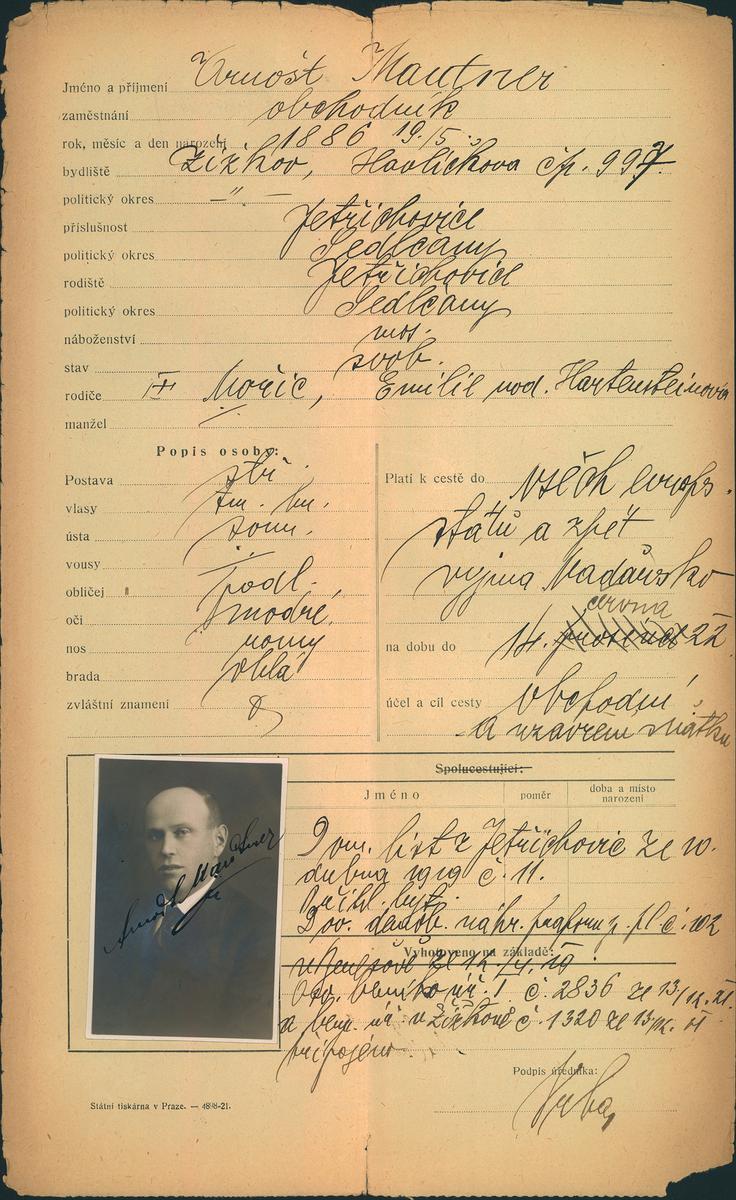 Jméno a příjmení Arnošt Mautner
zaměstnání obchodník
rok, měsíc a den narození 1886 19./5.
bydliště Žižkov, Havlíčkova čp. 997.
politický okres -"-
příslušnost Jetřichovice
politický okres Sedlčany
rodiště Jetřichovice
politický okres Sedlčany
náboženství mos.
stav svob.
rodiče Mořic, Emilie roz. Hartensteinova
manžel
Popis osoby:
Postava stř.
vlasy tm. hn.
ústa soum.
vousy
obličej podl.
oči modré.
nos rovný
brada oblá
zvláštní znamení
Platí k cestě do všech evrops.
států a zpět
vyjma Maďarsko
června
na dobu do 14. prosince 22
účel a cíl cesty obchodní
a uzavření sňatku
Spolucestující:
Jméno poměr doba a místo narození
Dom. list z Jetřichovic ze 10.
dubna 1919 č. 11.
Přihl. byt.
Pov. č. 102
Vyhotoveno na základě:
v Benešově ze 12./4. 19.
č. 2836 ze 13./12. 21.
a v Žižkově č. 1320 ze 13/12. 21
připojeno.
Arnošt Mautner
Podpis úředníka:
Vrba
Státní tiskárna v Praze. — 4898-21.